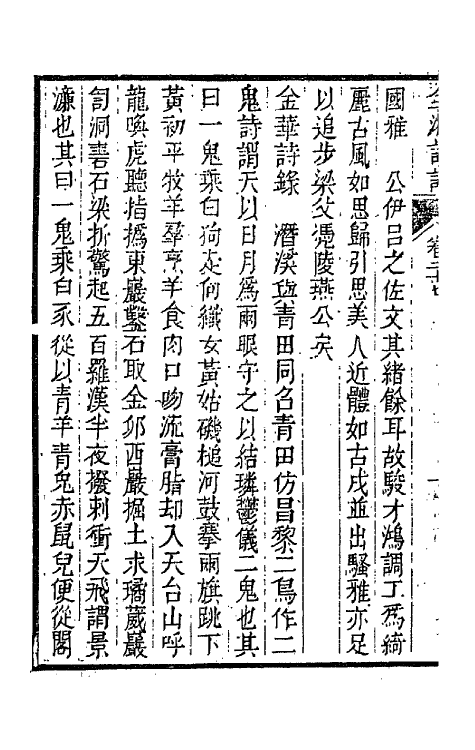 國雅　公伊呂之佐文其緒餘耳故駿才鴻調工爲綺
麗古風如思歸引思美人近體如古戍並出騷雅亦足
以追步梁父憑陵燕公矣
金華詩錄　潛溪與青田同名青田仿昌黎二鳥作二
鬼詩謂天以日月爲兩眼守之以結璘鬱儀二鬼也其
曰一鬼乘白狗走向織女黃姑磯槌河鼓搴兩旗跳下
黃初平牧羊羣烹羊食肉口吻流膏脂却入天台山呼
龍喚虎聽指撝東巖鑿石取金卯西巖掘土求瓀葳巖
訇洞砉石梁折驚起五百羅漢半夜撥剌衝天飛謂景
濂也其曰一鬼乘白豕從以青羊青兎赤鼠兒便從閣